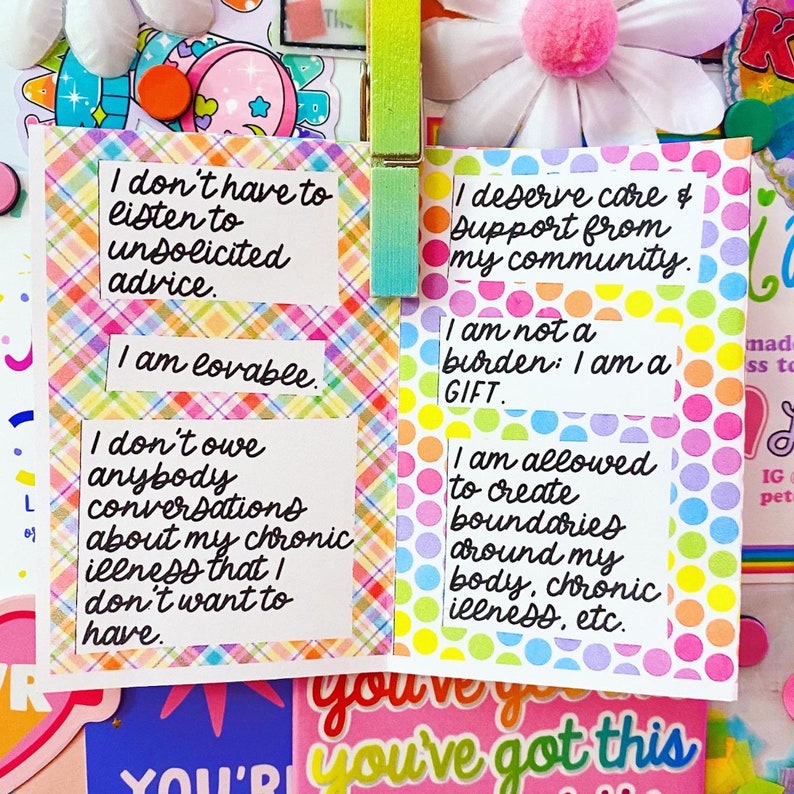 I don't have to
listen to
unsolicited
advice.
I am lovable.
I don't owe
anybody
conversations
about my chronic
illness that I
don't want to
have.
I deserve care &
support from
my community.
I am not a
burden: I am a
GIFT.
I am allowed
to create
boundaries
around my
body, chronic
illness, etc.
you've got this
you've got this
YOU'RE
IG @